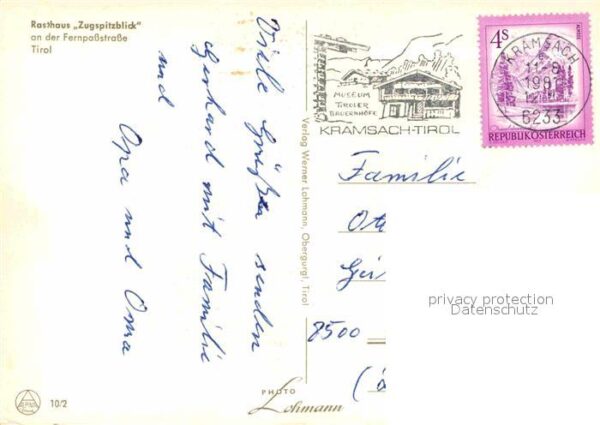 Rasthaus „Zugspitzblick"
an der Fernpaßstraße
Tirol
Viele Grüße senden
Gerhard mit Familie
und
Opa und Oma
Verlag Werner Lohmann, Obergurgl, Tirol
MUSEUM
TIROLER
BAUERNHÖFE
KRAMSACH-TIROL
4s
REPUBLIK ÖSTERREICH
KRAMSACH
6233
Familie
8500
privacy protection
Datenschutz
PHOTO
Lohmann
10/2